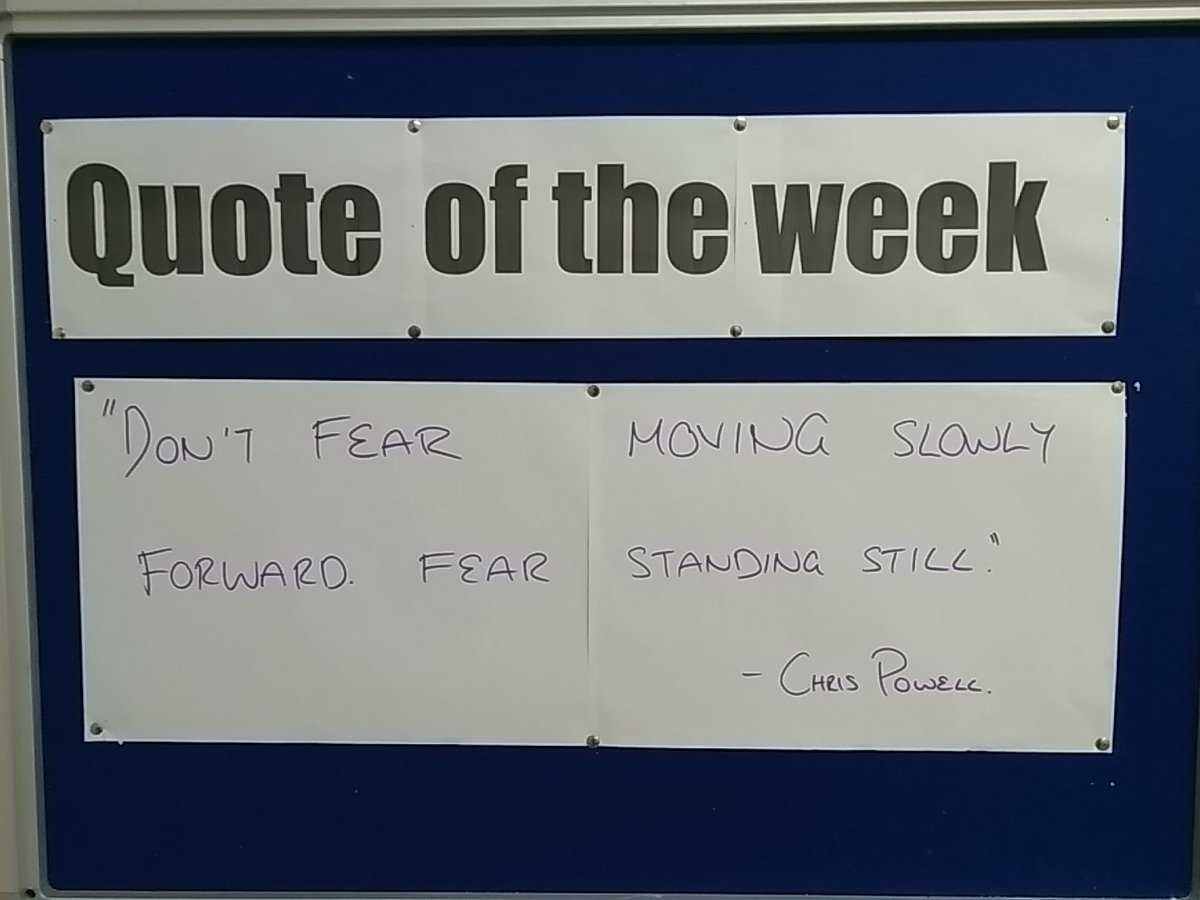 Quote of the week
"DON'T FEAR MOVING SLOWLY
FORWARD. FEAR STANDING STILL."
- CHRIS POWELL.